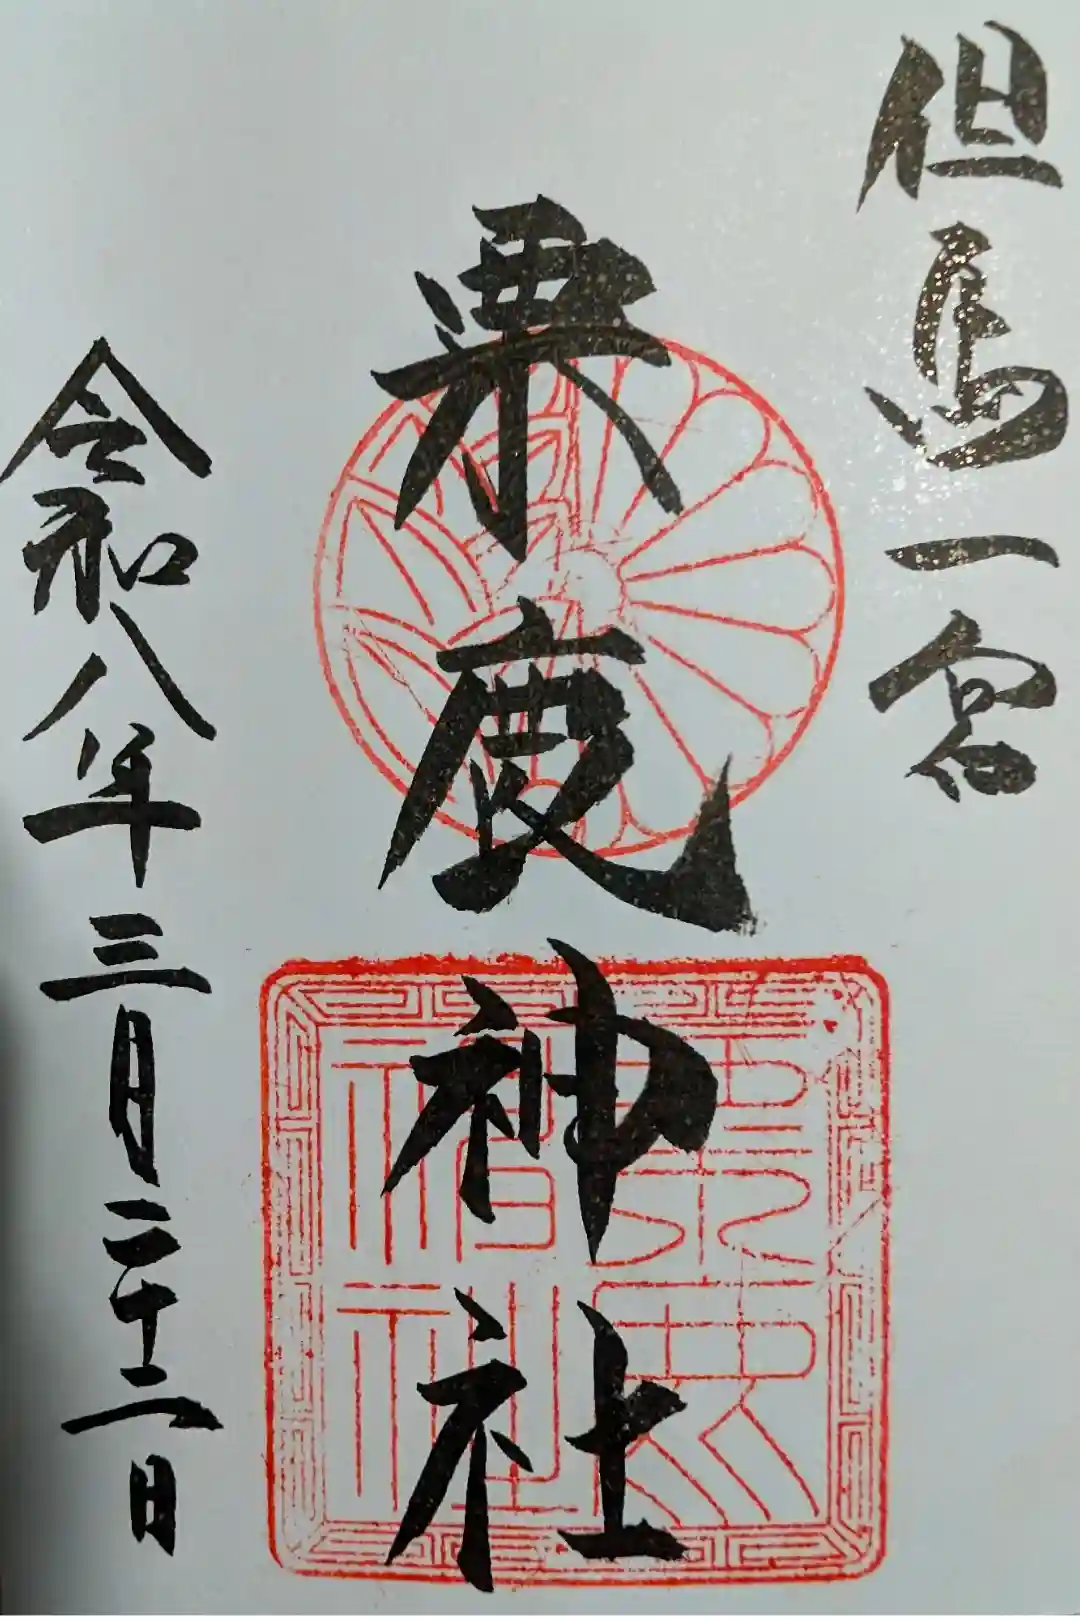 但馬一宮
粟鹿神社
粟鹿神社
令和八年三月二十二日